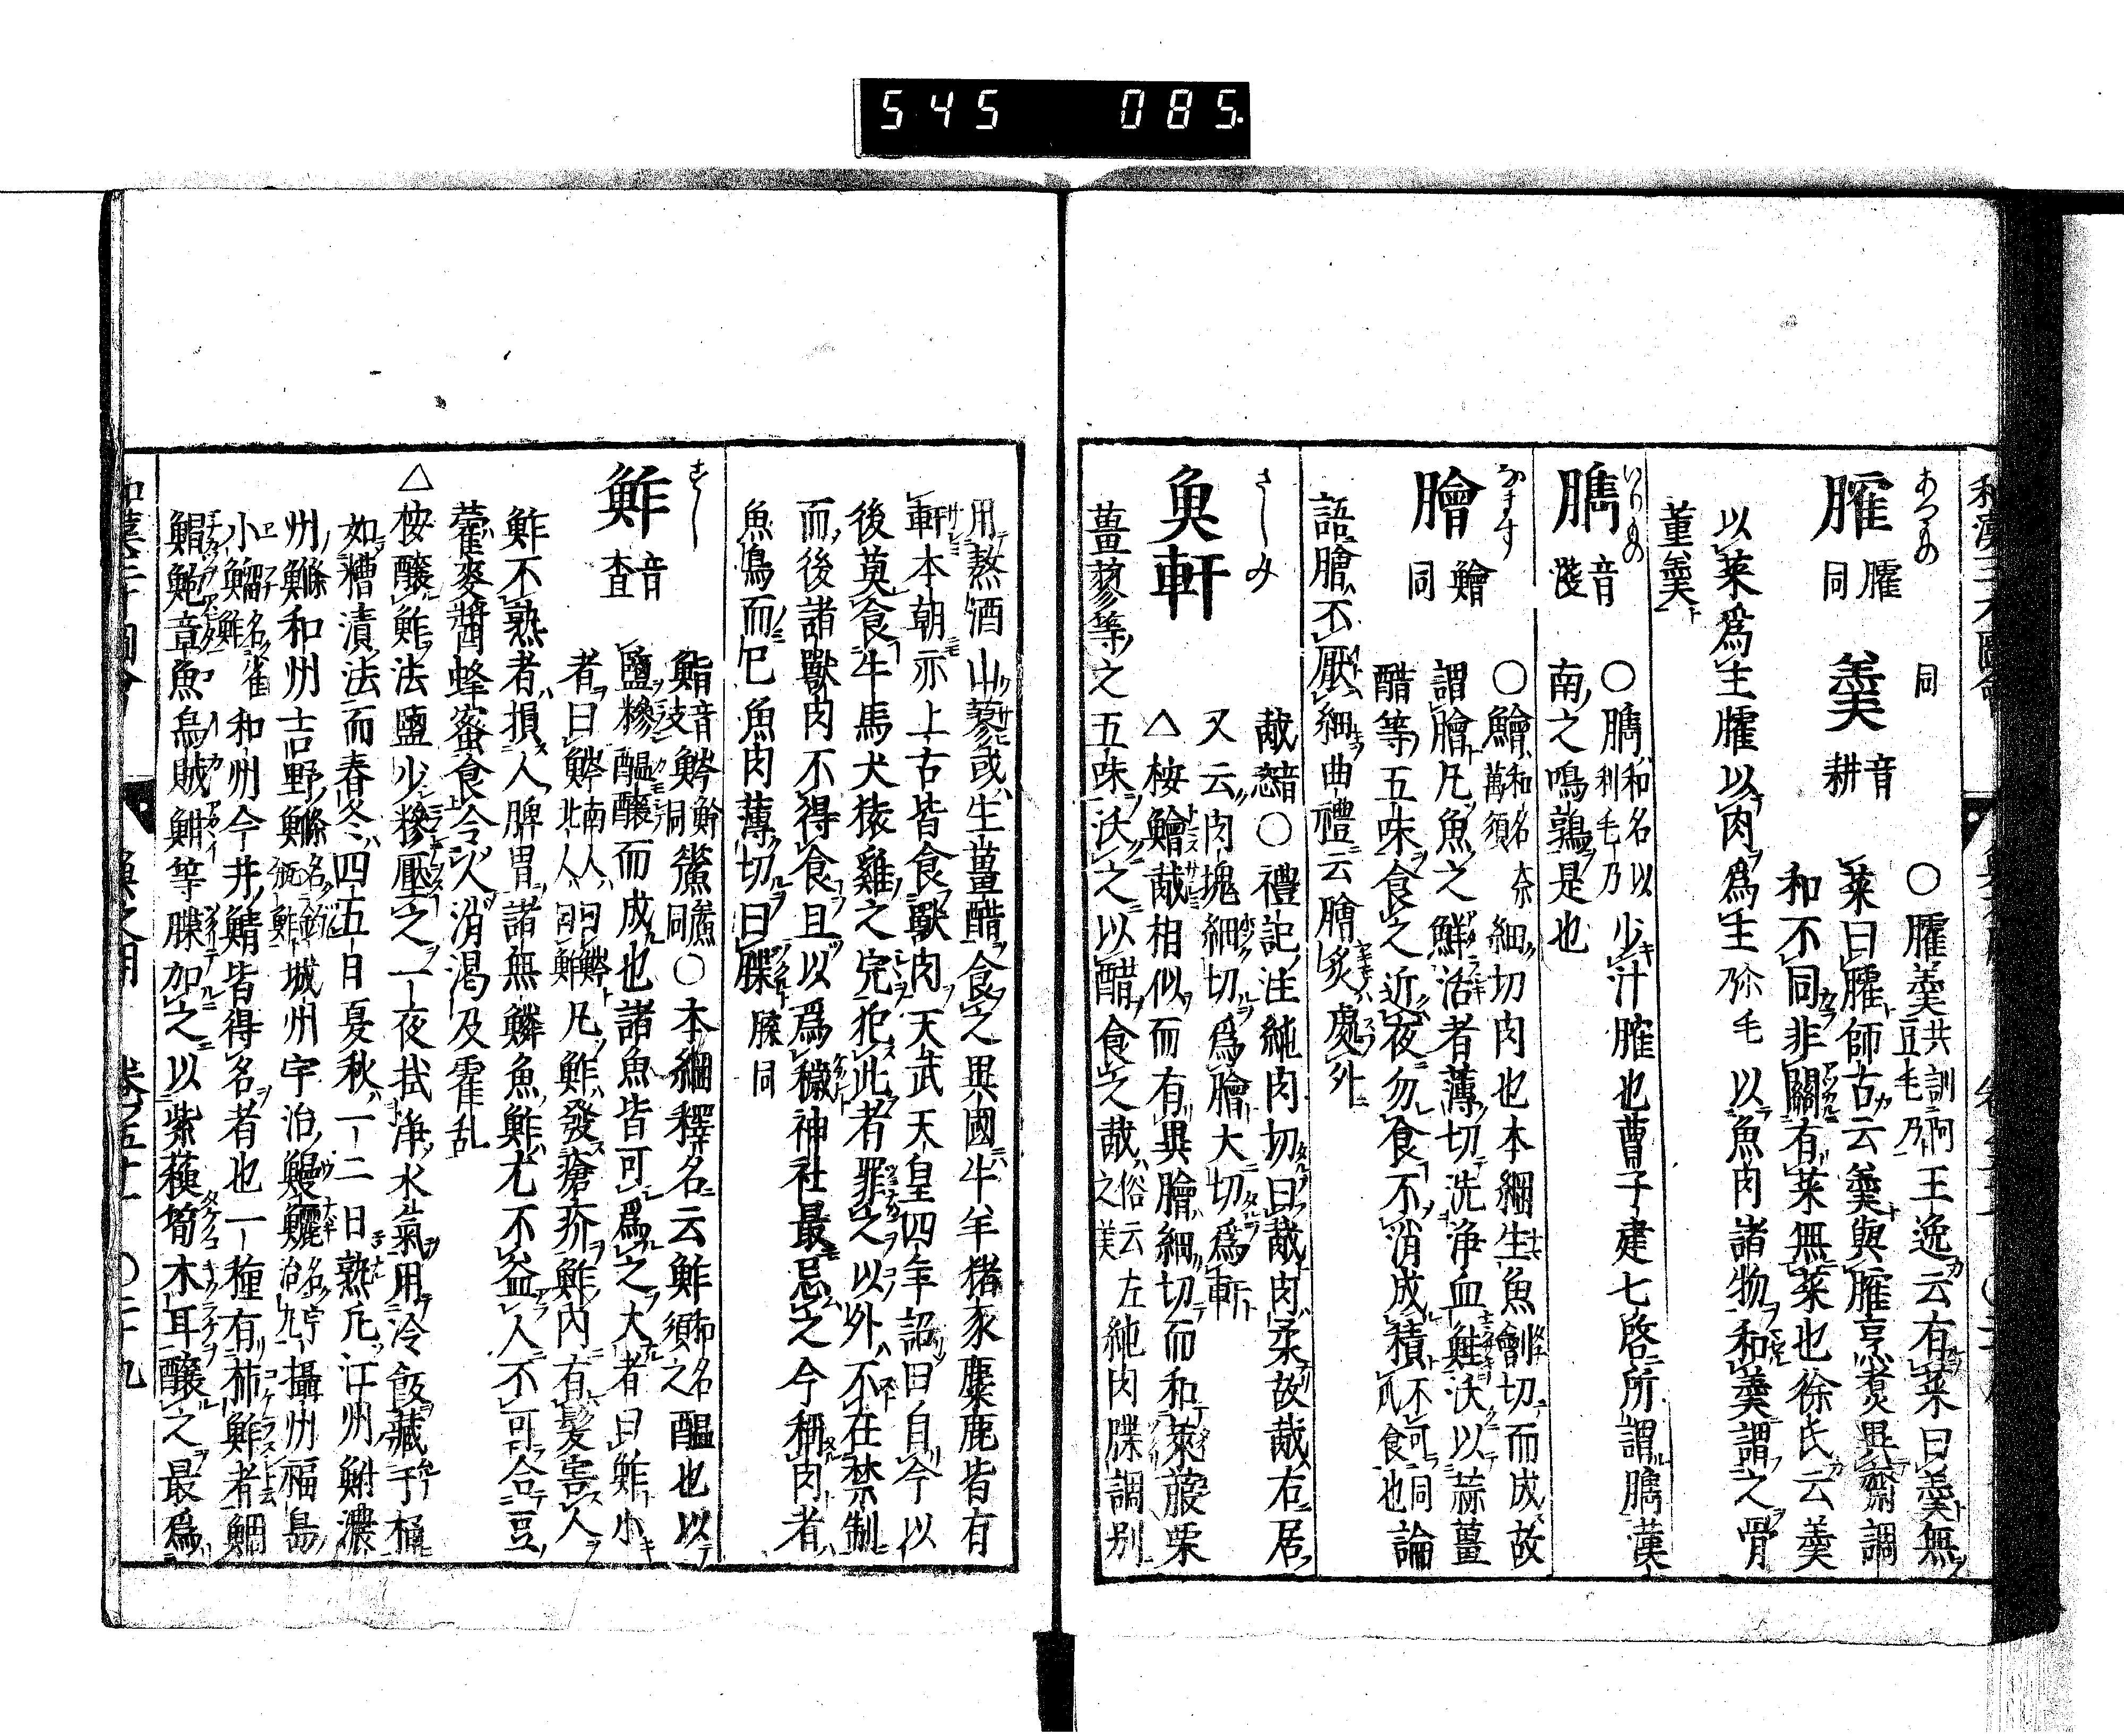 545 085
あつもの 同
臛 臛同 羹 音耕
○臛羹共訓阿豆毛乃王逸云有菜曰羹無
菜曰臛師古云羹與臛烹煮異齋調
和不同非關有菜無菜也徐氏云羹
以菜爲主臛以肉爲主 以魚肉諸物和羹謂之骨
董羹
いりもの
臇 音淺
○臇和名以利毛乃少汁臛也曹子建七啓所謂臇漢
南之鳴鶉是也
なます
膾 鱠同
○鱠和名奈萬須細切肉也本綱生魚劊切而成故
謂膾凡魚之鮮活者薄切洗浄血鮏沃以蒜薑
醋等五味食之近夜勿食不消成積不可同瓜食也論
語膾不厭細曲禮云膾炙處外
さしみ
魚軒
胾音恣○禮記注純肉切曰胾肉柔故胾右居
又云肉塊細切爲膾大切爲軒
△桉鱠胾相似而有異膾細切而和萊菔栗
薑蓼等之五味沃之以醋食之胾俗云左之美純肉牒調別
用熬酒山葵或生薑醋食之異國牛羊猪豕麋鹿皆有
軒本朝亦上古皆食獸肉天武天皇四年詔曰自今以
後莫食牛馬犬猿雞之宍犯此者罪之以外不在禁制
而後諸獸肉不得食且以爲穢神社最忌之今稱肉者
魚鳥而已魚肉薄切曰牒 䐑同
すし
鮓 音査
鮨音支䰼同鮺同○本綱釋名云鮓和名須之醖也以
鹽糝醖釀而成也諸魚皆可爲之大者曰鮓小
者曰䰼南人曰䰼北人曰鮓凡鮓發瘡疥鮓内有髮害人
鮓不熟者損人脾胃諸無鱗魚鮓尤不益人不可合豆
藿麥醤蜂蜜食令人消渴及霍乱
△桉釀鮓法鹽少糝壓之一夜拭浄水氣用冷飯藏于桶
如糟漬法而春冬四五日夏秋一二日熟凡江州鮒濃
州鰷和州吉野鰷名釣瓶鮓城州宇治鰻鱺名宇治丸攝州福島
小鰡名雀鮓和州今井鯖皆得名者也一種有柿鮓者鯛
鯧鮑章魚烏賊蚶等牒加之以紫蘓筍木耳釀之最爲